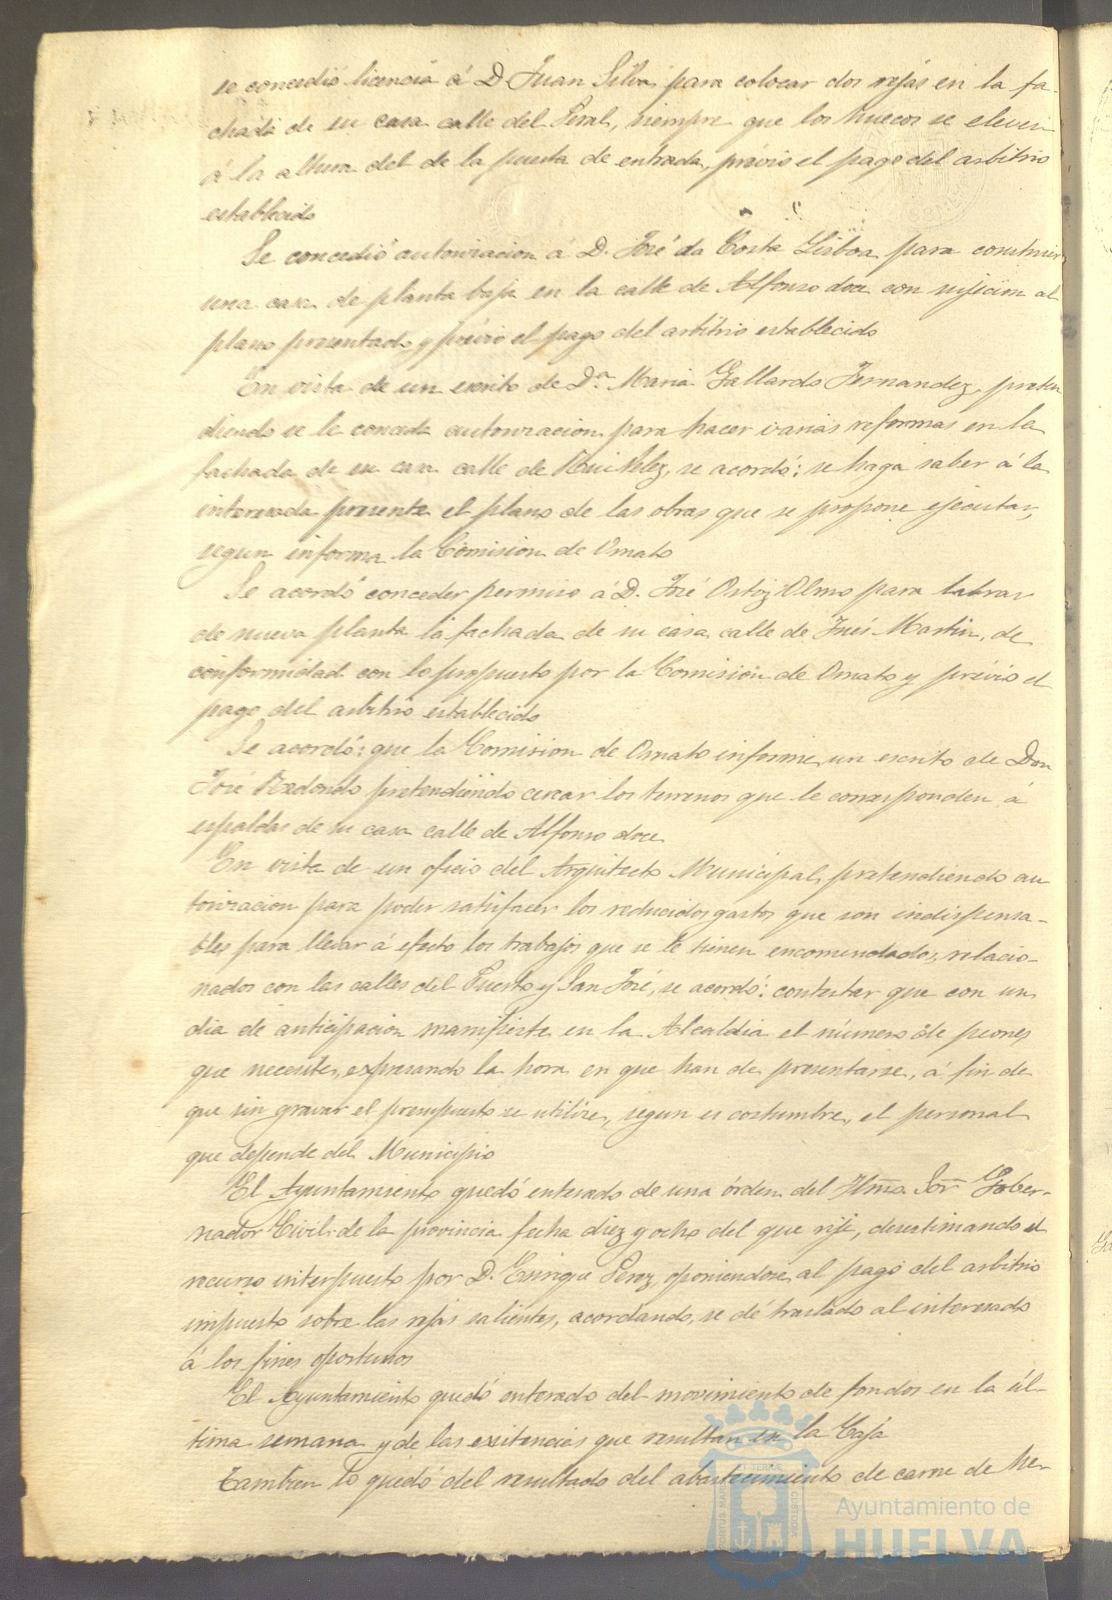 se concedió licencia á D Juan Silva para colocar dos rejas en la fa-
chada de su casa calle del Peral, siempre que los huecos se eleven
á la altura del de la puerta de entrada, prévio el pago del arbitrio
establecido
Se concedió autorizacion á D. José da Costa Lisboa para construir
una casa de planta baja en la calle de Alfonso doce con sujecion al
plano presentado y prévio el pago del arbitrio establecido
En vista de un escrito de D.ª Maria Gallardo Fernandez, preten
diendo se le conceda autorizacion para hacer varias reformas en la
fachada de su casa calle de Rui Velez, se acordó: se haga saber á la
interesada presente el plano de las obras que se propone ejecutar,
segun informa la Comision de Ornato
Se acordó conceder permiso á D. José Ortiz Olmo para labrar
de nueva planta la fachada de su casa calle de Inés Martin, de
conformidad con lo propuesto por la Comision de Ornato y prévio el
pago del arbitrio establecido
Se acordó: que la Comision de Ornato informe un escrito de Don
José Redondo pretendiendo cercar los terrenos que le corresponden á
espaldas de su casa calle de Alfonso doce
En vista de un oficio del Arquitecto Municipal, pretendiendo au
torizacion para poder satisfacer los reducidos gastos que son indispensa-
bles para llevar á efecto los trabajos que se le tienen encomendados, relacio-
nados con las calles del Puerto y San José, se acordó: contestar que con un
dia de anticipacion manifieste en la Alcaldia el número de peones
que necesite, expresando la hora en que han de presentarse, á fin de
que sin gravar el presupuesto se utilize, segun es costumbre, el personal
que depende del Municipio
El Ayuntamiento quedó enterado de una órden del Iltmo. Sor. Gober-
nador Civil de la provincia fecha diez y ocho del que rije, desestimando el
recurso interpuesto por D. Enrique Perez, oponiendose al pago del arbitrio
impuesto sobre las rejas salientes, acordando, se dé traslado al interesado
á los fines oportunos
El Ayuntamiento quedó enterado del movimiento de fondos en la úl-
tima semana y de las existencias que resultan en la Caja
Tambien lo quedó del resultado del abastecimiento de carne de he-
Ayuntamiento de
HUELVA